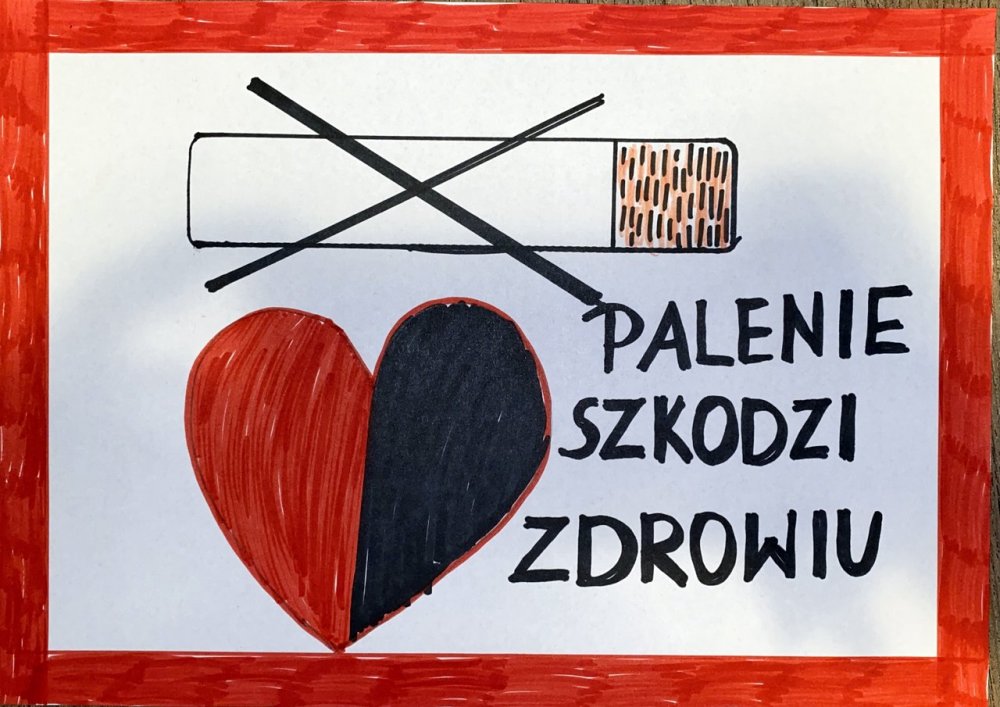 PALENIE
SZKODZI
ZDROWIU